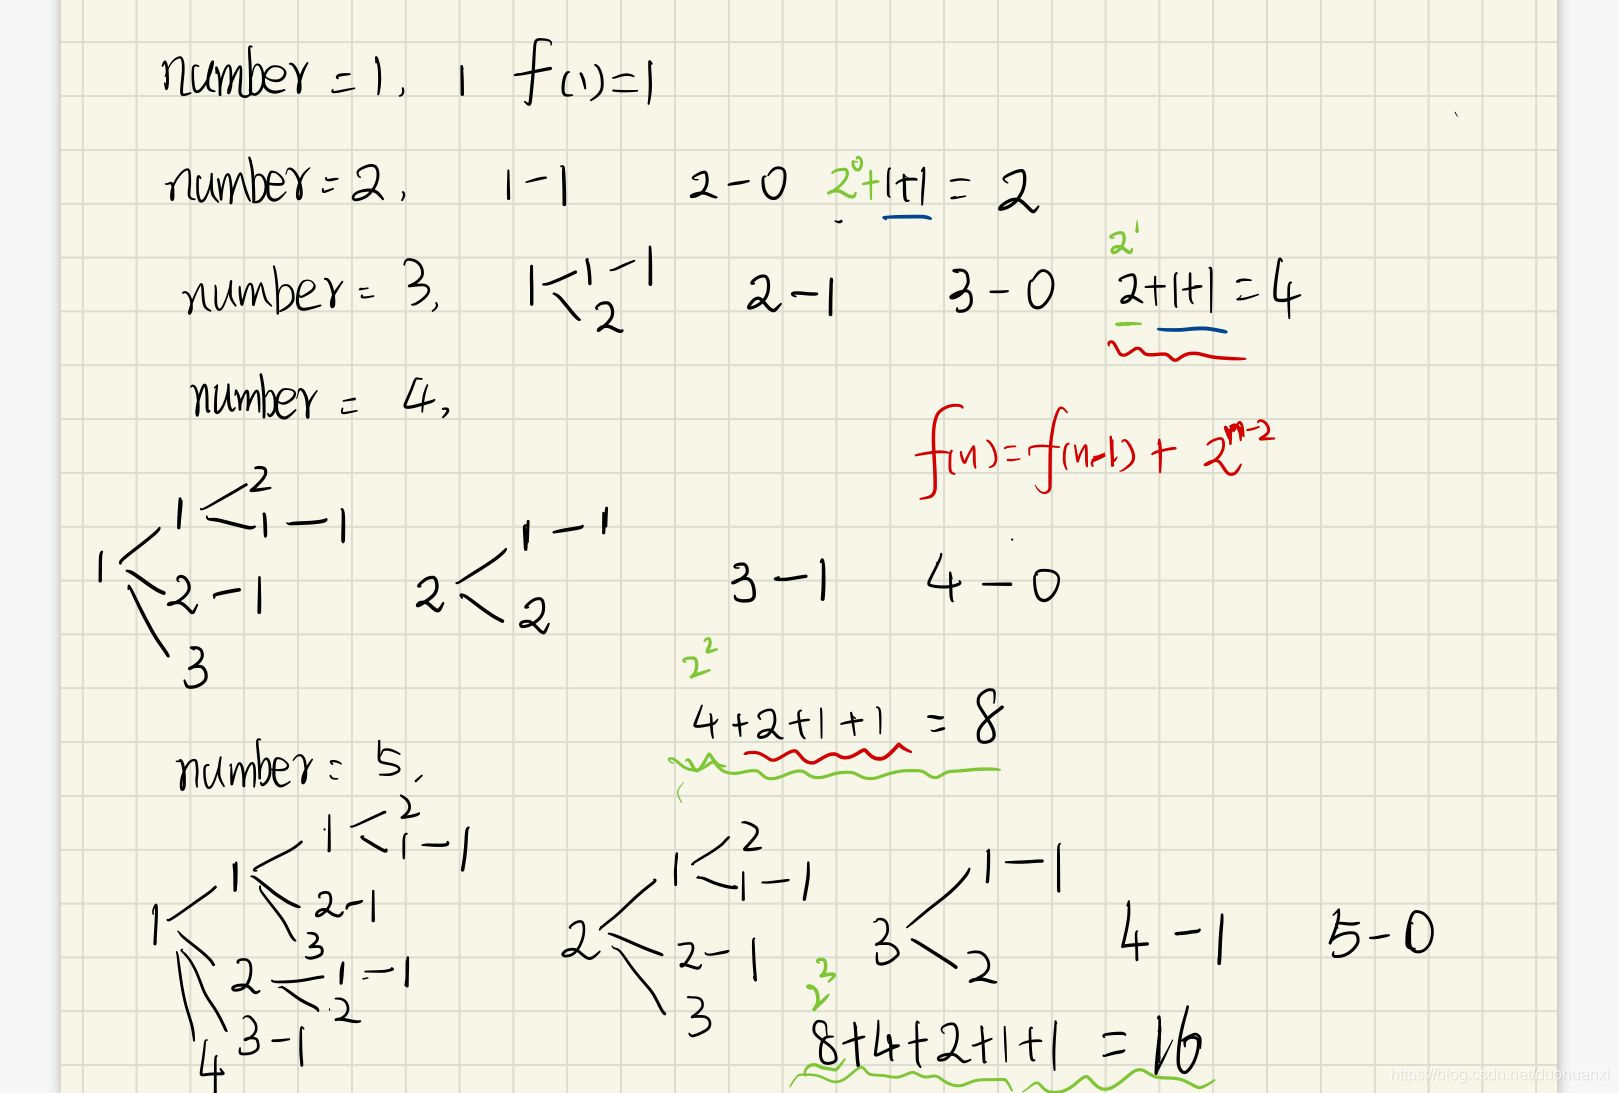 number = 1, 1 f(1)=1
number = 2, 1-1 2-0 2⁰+1+1 = 2
2¹
number = 3, 1 1-1 2-1 3-0 2+1+1 = 4
2
number = 4,
f(n) = f(n-1) + 2ⁿ⁻²
2
1 1-1
1 2-1
3
2 1-1
2
3-1 4-0
2²
4+2+1+1 = 8
number = 5,
1 1 1 2
1-1
2-1
3
2 1-1
2
3-1
4
2 1 2
1-1
2-1
3
3 1-1
2
4-1 5-0
2³
8+4+2+1+1 = 16
https://blog.csdn.net/duohuanxi